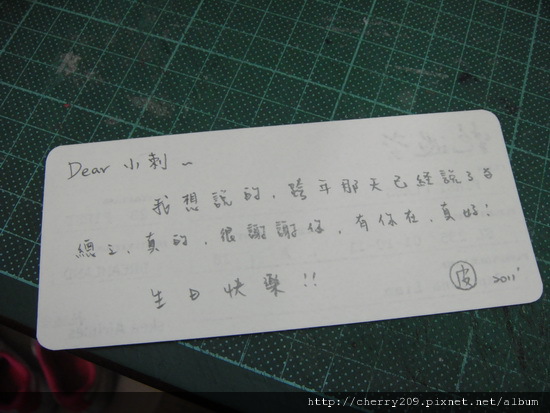 Dear 小刺~
我想說的，跨年那天已經說了
總之，真的，很謝謝你，有你在，真好！
生日快樂!!
皮 2011'
http://cherry209.pixnet.net/album